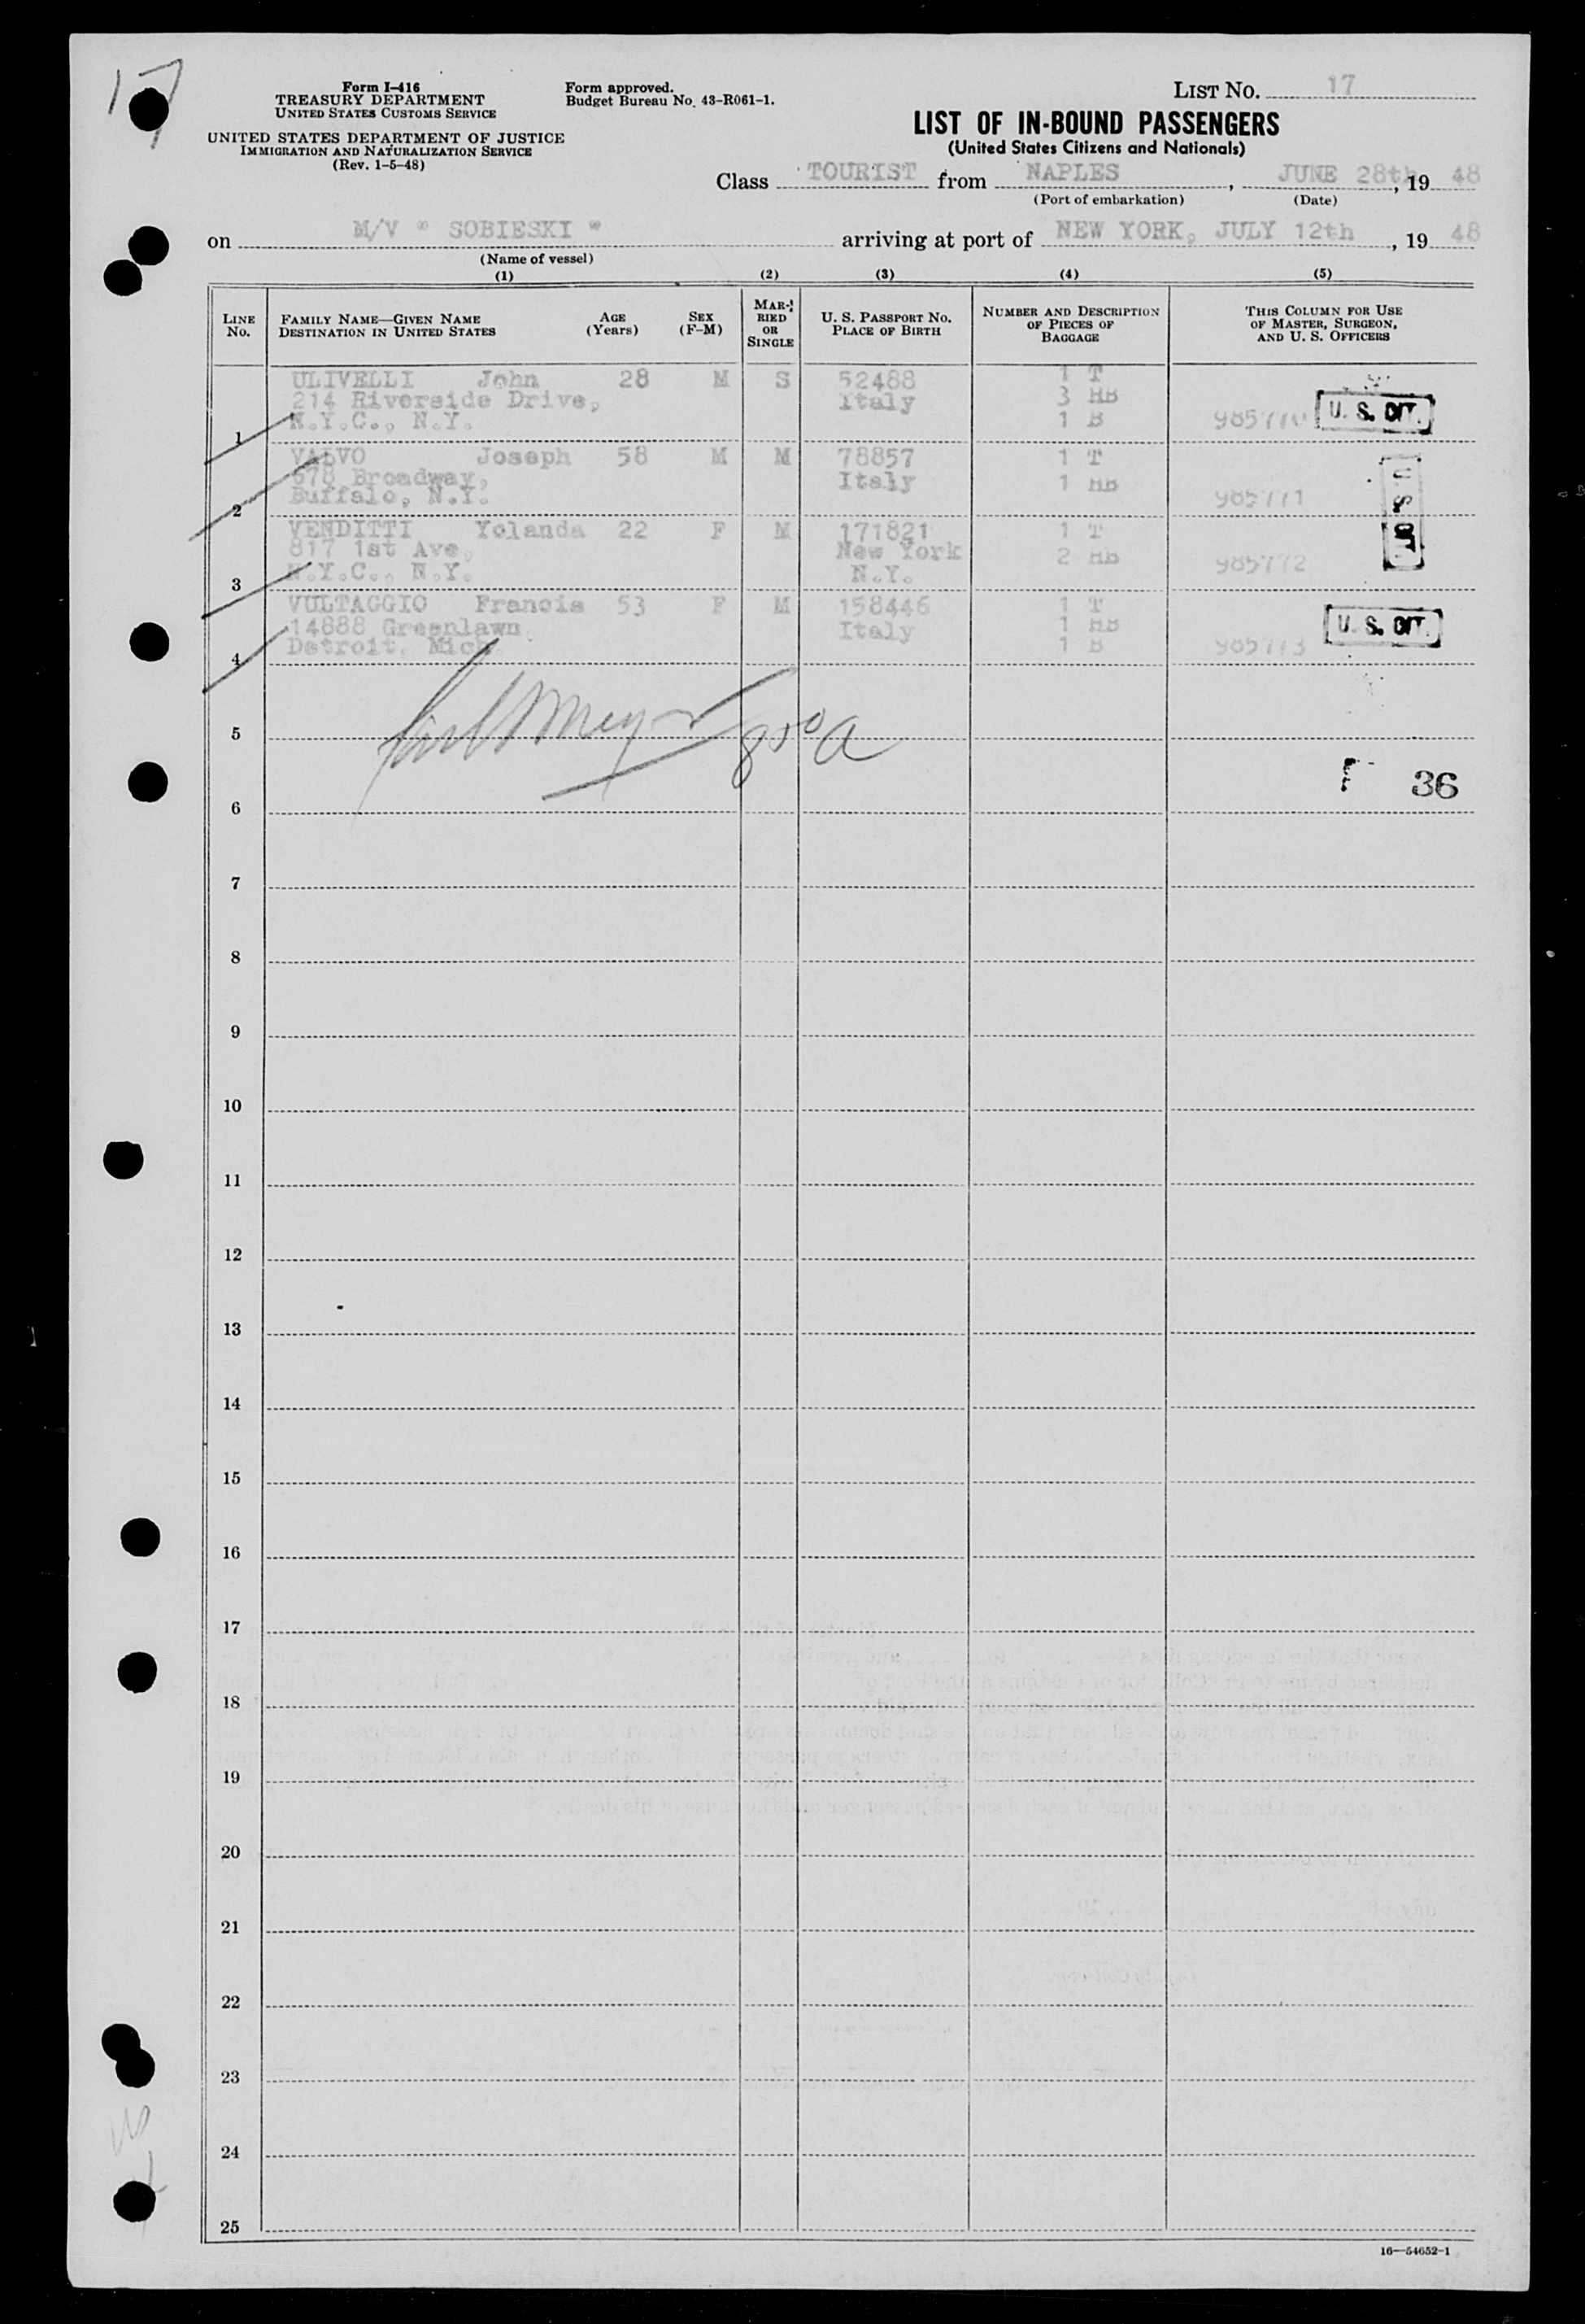 17
Form I-416
TREASURY DEPARTMENT
UNITED STATES CUSTOMS SERVICE
UNITED STATES DEPARTMENT OF JUSTICE
IMMIGRATION AND NATURALIZATION SERVICE
(Rev. 1-5-48)
Form approved.
Budget Bureau No. 43-R061-1.
LIST NO. 17
LIST OF IN-BOUND PASSENGERS
(United States Citizens and Nationals)
Class TOURIST from NAPLES, JUNE 28th, 19 48
(Port of embarkation) (Date)
on M/V " SOBIESKI " arriving at port of NEW YORK, JULY 12th, 19 48
(Name of vessel)
(1) (2) (3) (4) (5)
LINE NO.
FAMILY NAME—GIVEN NAME
DESTINATION IN UNITED STATES
AGE (Years)
SEX (F-M)
MARRIED OR SINGLE
U. S. PASSPORT NO.
PLACE OF BIRTH
NUMBER AND DESCRIPTION OF PIECES OF BAGGAGE
THIS COLUMN FOR USE OF MASTER, SURGEON, AND U. S. OFFICERS
ULIVELLI John 28 M S 52488 1 T
214 Riverside Drive, Italy 3 HB
1 N.Y.C., N.Y. 1 B 985770 U. S. CIT.
VALVO Joseph 58 M M 78857 1 T
678 Broadway, Italy 1 HB
2 Buffalo, N.Y. 985771 U S CIT.
VENDITTI Yolanda 22 F M 171821 1 T
817 1st Ave, New York 2 HB
3 N.Y.C., N.Y. N.Y. 985772
VULTAGGIO Francis 53 F M 158446 1 T
14888 Greenlawn, Italy 1 HB
4 Detroit, Mich. 1 B 985773 U. S. CIT.
5
36
6
7
8
9
10
11
12
13
14
15
16
17
18
19
20
21
22
23
24
25
16—54652-1